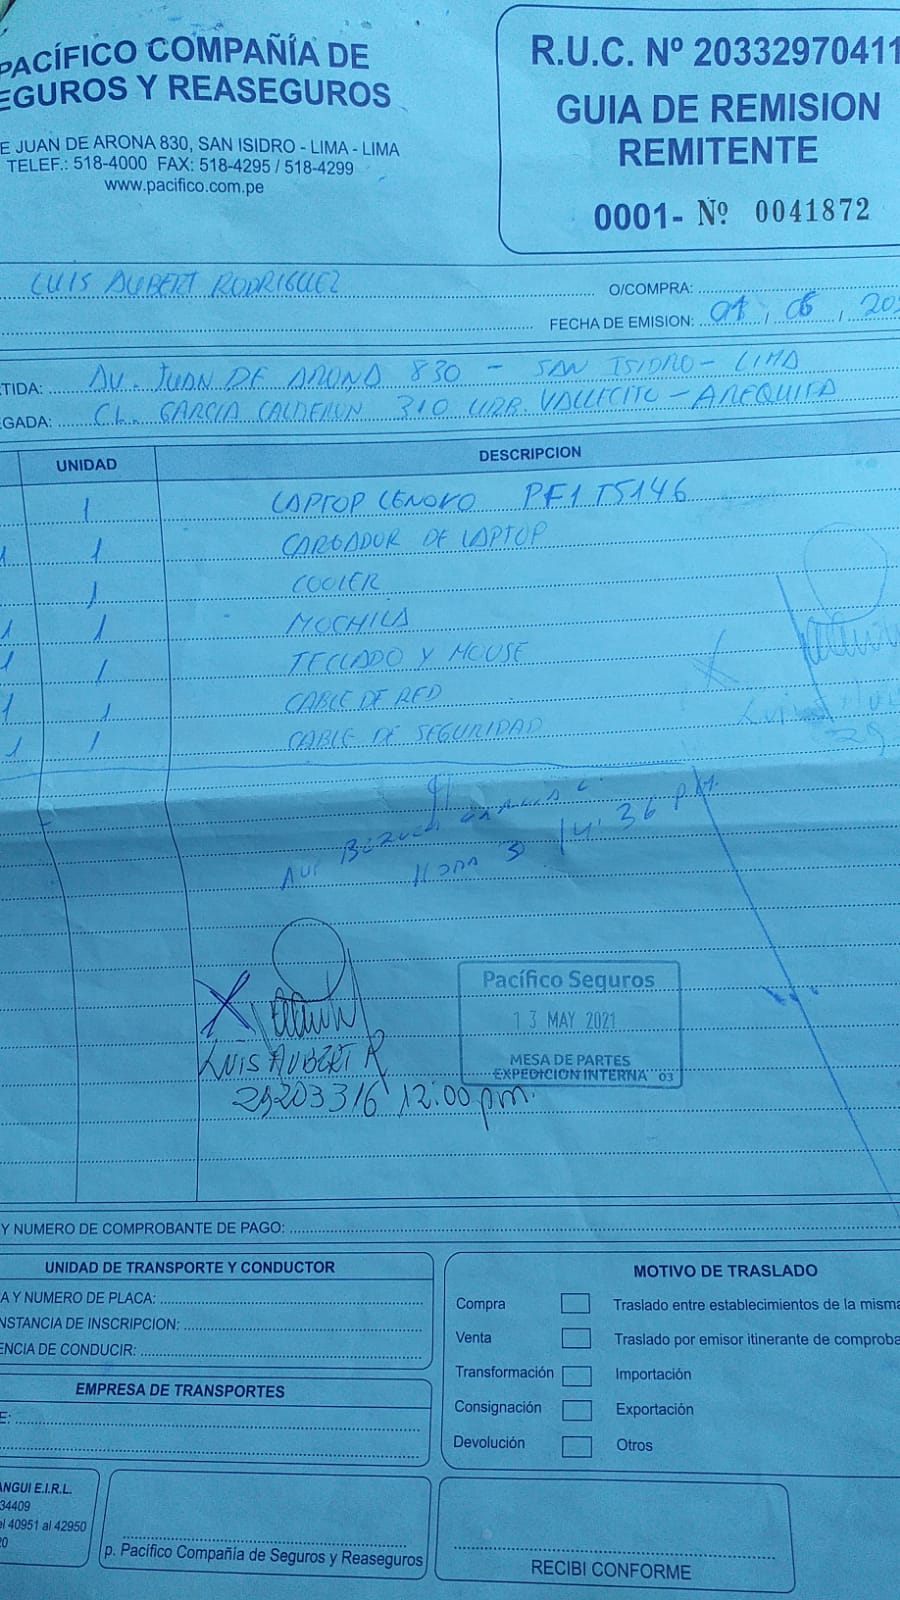 PACÍFICO COMPAÑÍA DE
EGUROS Y REASEGUROS
E JUAN DE ARONA 830, SAN ISIDRO - LIMA - LIMA
TELEF.: 518-4000 FAX: 518-4295 / 518-4299
www.pacifico.com.pe
R.U.C. Nº 20332970411
GUIA DE REMISION
REMITENTE
0001- Nº 0041872
LUIS AUBERT RODRIGUEZ
O/COMPRA:
FECHA DE EMISION: 01, 06, 202
TIDA: AV. JUAN DE ARONA 830 - SAN ISIDRO - LIMA
GADA: CL. GARCIA CALDERON 310 URB. VALLECITO - AREQUIPA
UNIDAD DESCRIPCION
1 LAPTOP LENOVO PF1T5146
1 1 CARGADOR DE LAPTOP
1 COOLER
1 1 MOCHILA
1 1 TECLADO Y MOUSE
1 1 CABLE DE RED
1 1 CABLE DE SEGURIDAD
HORA 14:36 PM.
Pacífico Seguros
13 MAY 2021
MESA DE PARTES
EXPEDICION INTERNA 03
LUIS AUBERT R
29203316 12:00 pm.
Y NUMERO DE COMPROBANTE DE PAGO:
UNIDAD DE TRANSPORTE Y CONDUCTOR
A Y NUMERO DE PLACA:
NSTANCIA DE INSCRIPCION:
ENCIA DE CONDUCIR:
EMPRESA DE TRANSPORTES
E:
MOTIVO DE TRASLADO
Compra Traslado entre establecimientos de la misma
Venta Traslado por emisor itinerante de comproba
Transformación Importación
Consignación Exportación
Devolución Otros
ANGUI E.I.R.L.
34409
el 40951 al 42950
20
p. Pacífico Compañía de Seguros y Reaseguros
RECIBI CONFORME